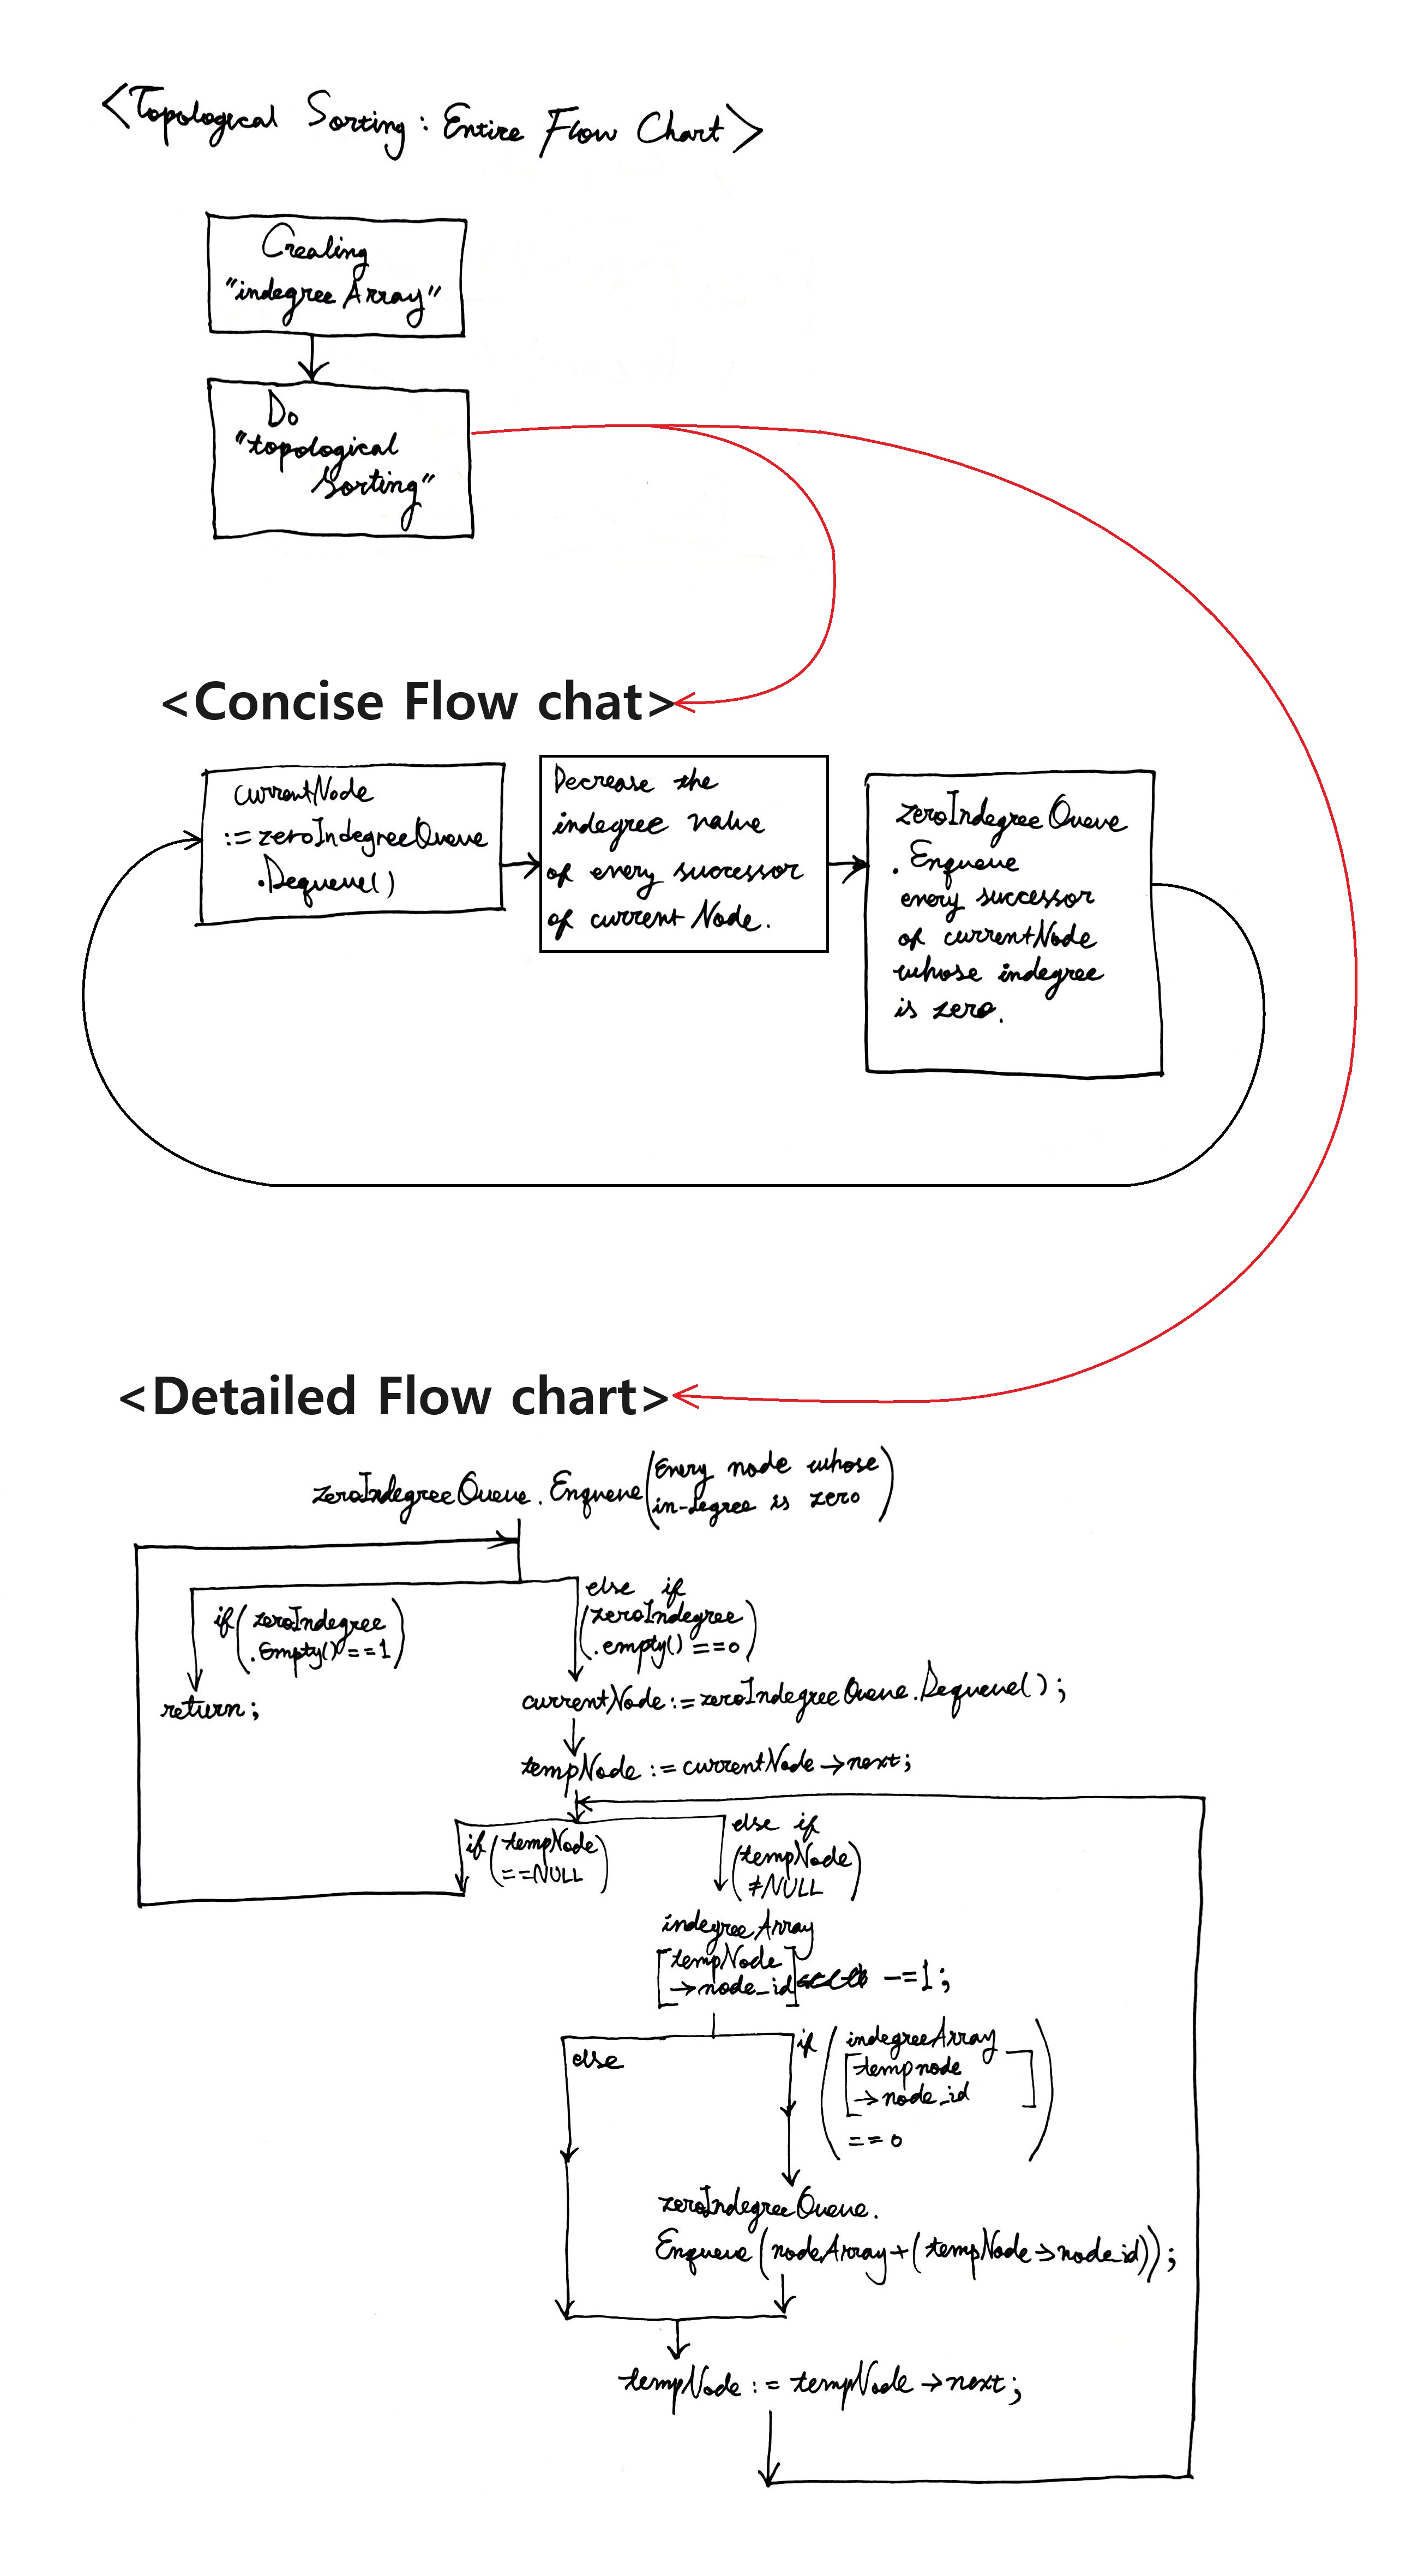 <Topological Sorting : Entire Flow Chart>
Creating
"indegree Array"
Do
"topological
Sorting"
<Concise Flow chat>
currentNode
:= zeroIndegreeQueue
.Dequeue()
Decrease the
indegree value
of every successor
of current Node.
zeroIndegreeQueue
.Enqueue
every successor
of currentNode
whose indegree
is zero.
<Detailed Flow chart>
zeroIndegreeQueue.Enqueue(Every node whose
in-degree is zero)
if(zeroIndegree
.Empty()==1)
return;
else if
(zeroIndegree
.empty()==0)
currentNode:=zeroIndegreeQueue.Dequeue();
tempNode:=currentNode->next;
if(tempNode
==NULL)
else if
(tempNode
≠NULL)
indegreeArray
[tempNode
->node_id] -=1;
else
if(indegreeArray
[tempnode
->node_id]
==0)
zeroIndegreeQueue.
Enqueue(nodeArray+(tempNode->node_id));
tempNode:=tempNode->next;